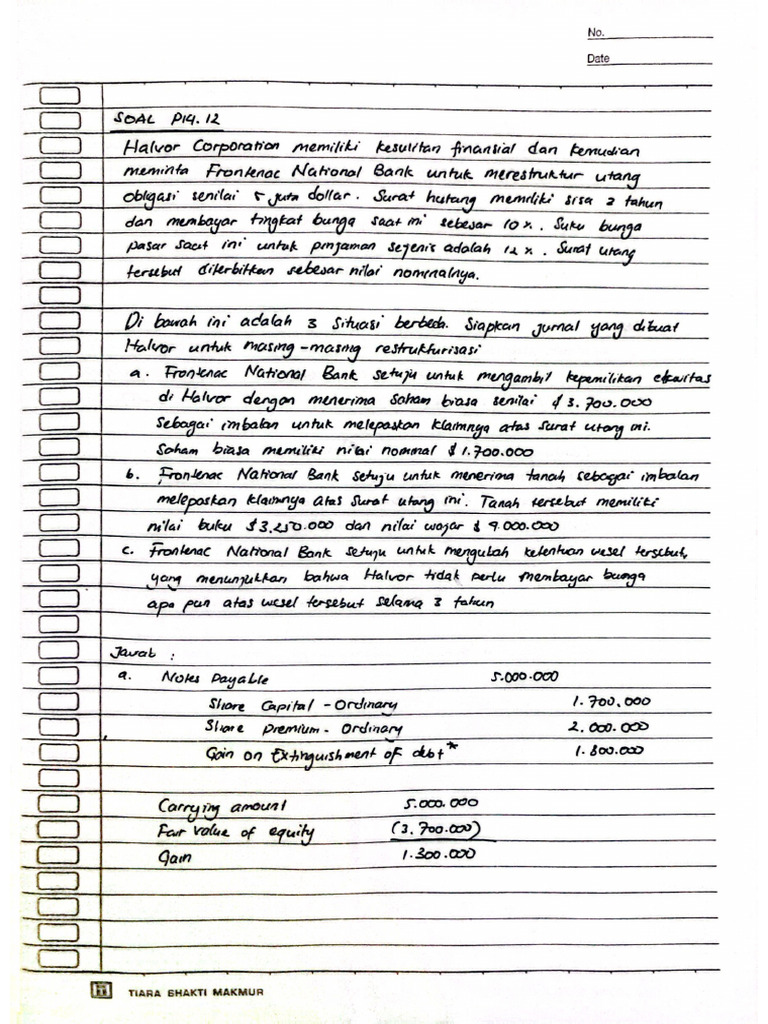 No.
Date
SOAL P14.12
Halvor Corporation memiliki kesulitan finansial dan kemudian
meminta Frontenac National Bank untuk merestruktur utang
obligasi senilai 5 juta dollar. Surat hutang memiliki sisa 3 tahun
dan membayar tingkat bunga saat ini sebesar 10%. Suku bunga
pasar saat ini untuk pinjaman sejenis adalah 12%. Surat utang
tersebut diterbitkan sebesar nilai nominalnya.
Di bawah ini adalah 3 situasi berbeda. Siapkan jurnal yang dibuat
Halvor untuk masing-masing restrukturisasi
a. Frontenac National Bank setuju untuk mengambil kepemilikan ekuitas
di Halvor dengan menerima saham biasa senilai $3.700.000
sebagai imbalan untuk melepaskan klaimnya atas surat utang ini.
Saham biasa memiliki nilai nominal $1.700.000
b. Frontenac National Bank setuju untuk menerima tanah sebagai imbalan
melepaskan klaimnya atas surat utang ini. Tanah tersebut memiliki
nilai buku $3.250.000 dan nilai wajar $4.000.000
c. Frontenac National Bank setuju untuk mengubah ketentuan wesel tersebut,
yang menunjukkan bahwa Halvor tidak perlu membayar bunga
apa pun atas wesel tersebut selama 3 tahun
Jawab :
a. Notes Payable 5.000.000
Share Capital - Ordinary 1.700.000
Share Premium - Ordinary 2.000.000
Gain on Extinguishment of debt* 1.300.000
Carrying amount 5.000.000
Fair value of equity (3.700.000)
Gain 1.300.000
TIARA BHAKTI MAKMUR